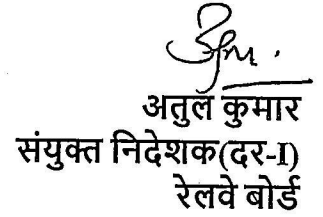 अतुल कुमार
संयुक्त निदेशक(दर-I)
रेलवे बोर्ड